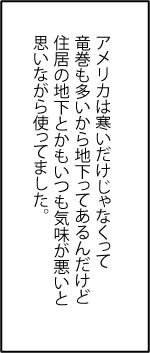 アメリカは寒いだけじゃなくって
竜巻も多いから地下ってあるんだけど
住居の地下とかもいつも気味が悪いと
思いながら使ってました。